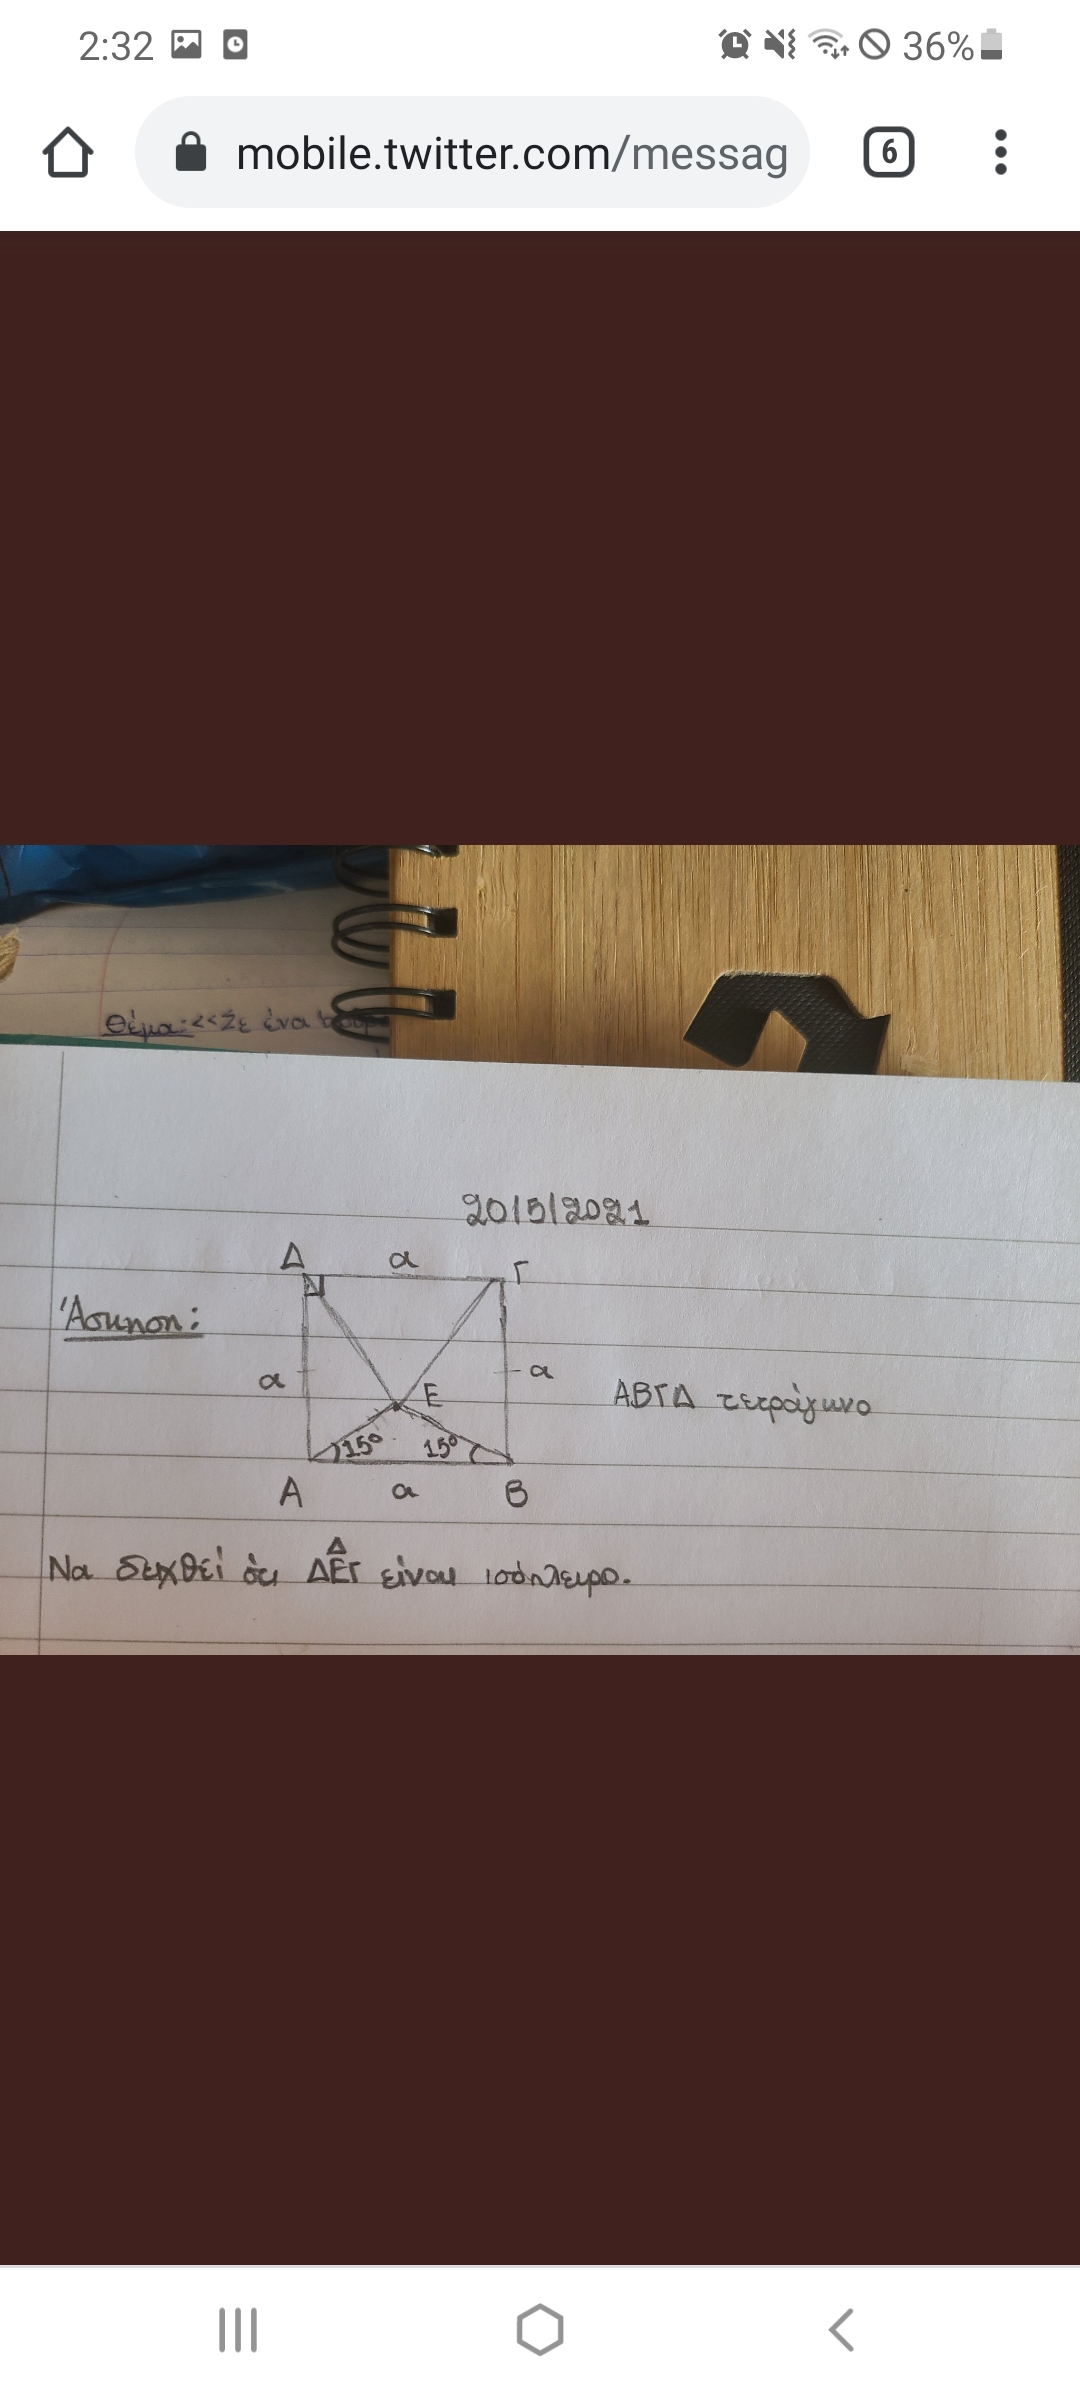 2:32 36%
mobile.twitter.com/messag 6
Θέμα: <<Σε ένα
20/5/2021
Δ α Γ
Άσκηση:
α Ε α
ΑΒΓΔ τετράγωνο
15° 15°
Α α Β
Να δειχθεί ότι ΔΕΓ είναι ισόπλευρο.